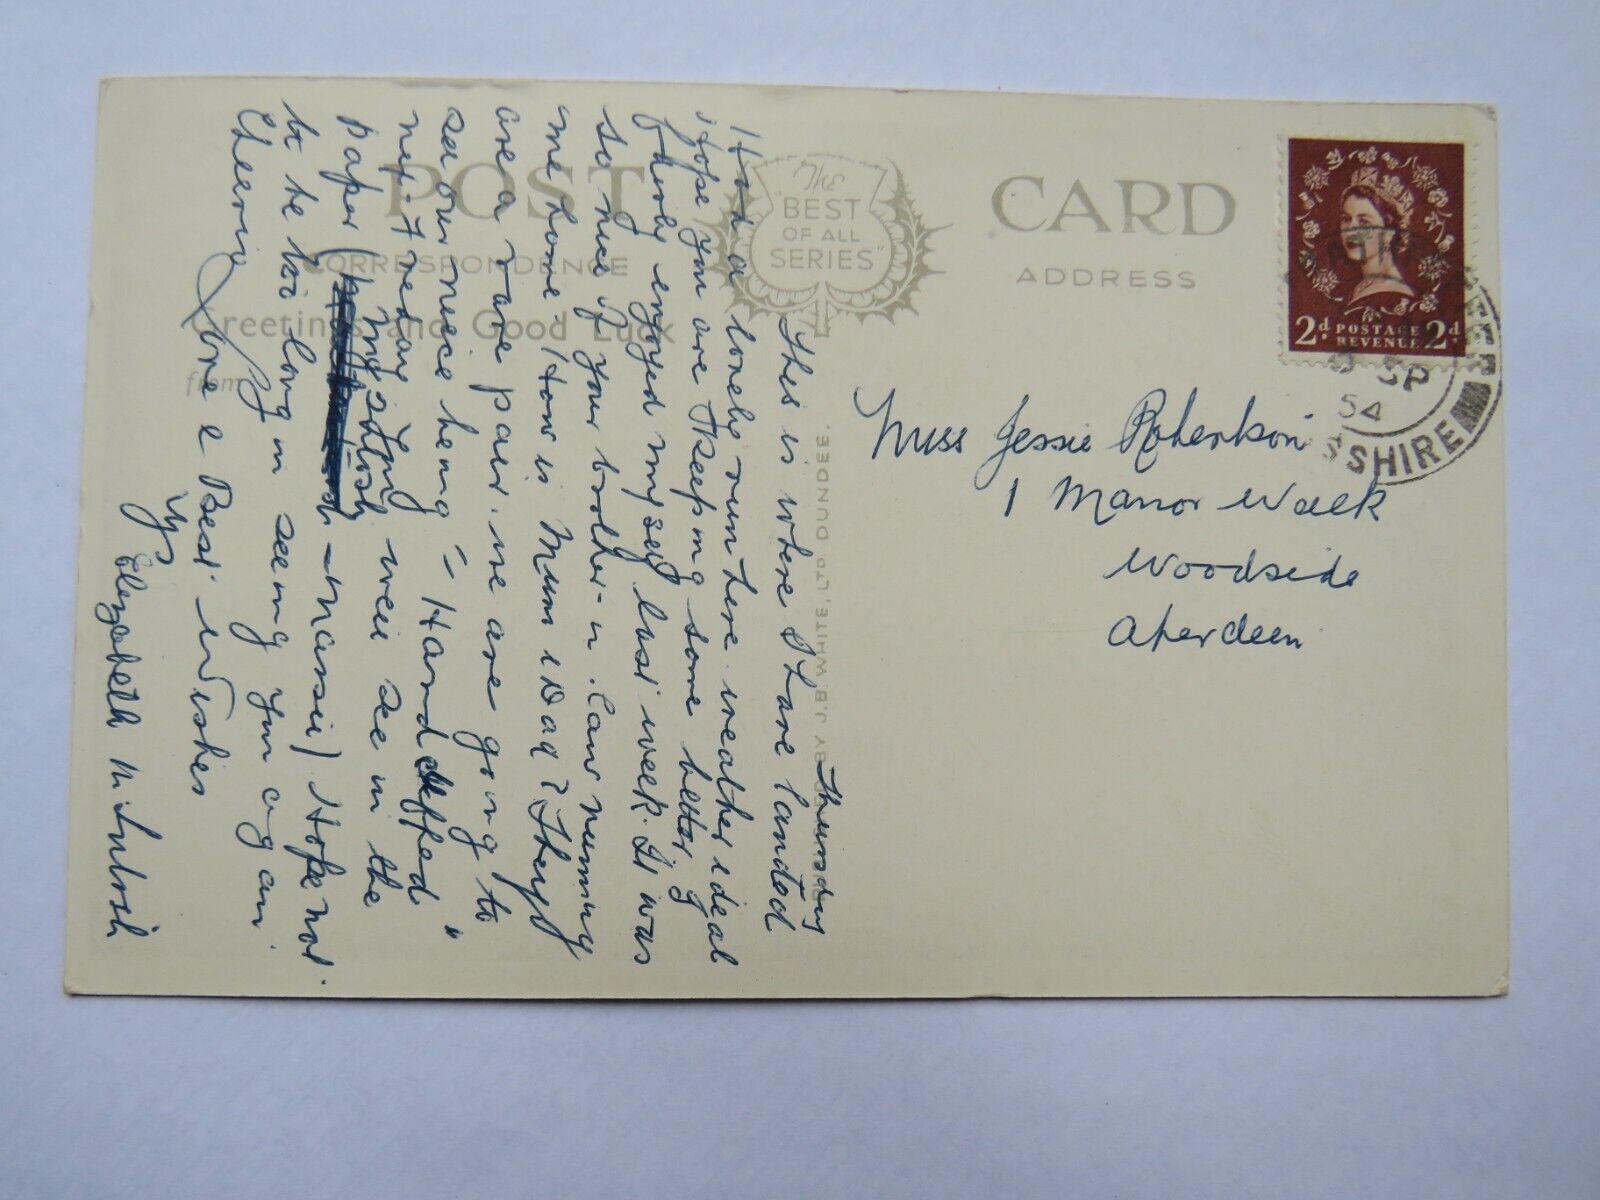 POST CARD
THE
"BEST
OF ALL
SERIES"
CORRESPONDENCE
ADDRESS
Greetings and Good Luck
from
BY J.B. WHITE, LTD. DUNDEE.
2d POSTAGE 2d
REVENUE
SP
54
SSHIRE
Thursday
This is where I have landed
Had a lovely run here weather ideal
Hope you are keeping some better. I
fairly enjoyed myself last week. It was
so nice of your brother-n-law running
me home. How is Mum & Dad? They
are a rare pair. we are going to
sa our neice being "Handcuffed"
nex. Friday. You will see in the
paper (
Hope not
to be too long in seeing you again
Cheerio Love & Best Wishes
Ys
Elizabeth McIntosh
Miss Jessie Robertson
1 Manor Walk
Woodside
Aberdeen